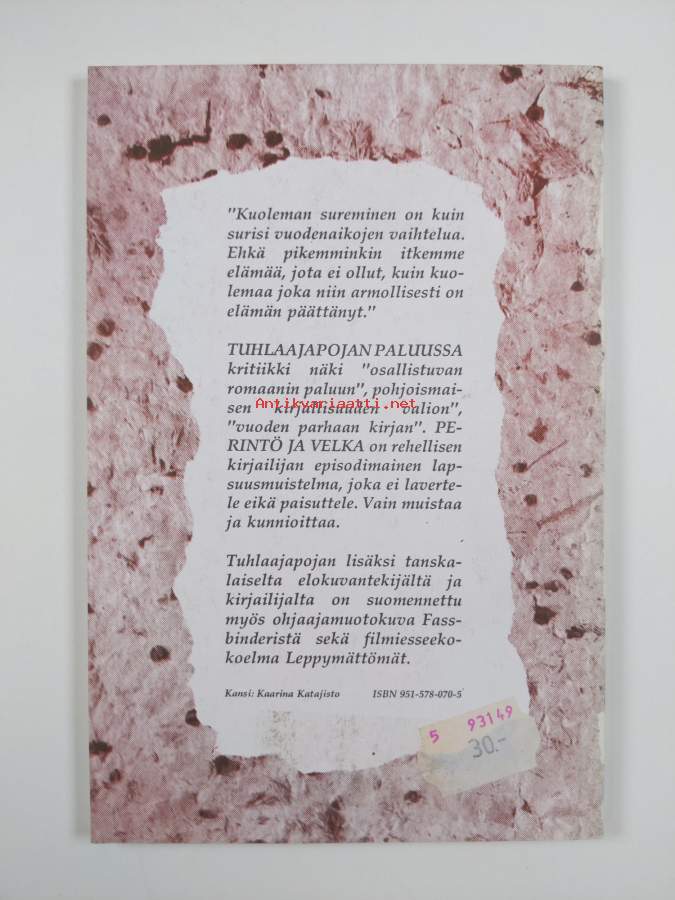 "Kuoleman sureminen on kuin
surisi vuodenaikojen vaihtelua.
Ehkä pikemminkin itkemme
elämää, jota ei ollut, kuin kuo-
lemaa joka niin armollisesti on
elämän päättänyt."
TUHLAAJAPOJAN PALUUSSA
kritiikki näki "osallistuvan
romaanin paluun", pohjoismai-
sen kirjallisuuden valion",
Antikvariaatti.net
"vuoden parhaan kirjan". PE-
RINTÖ JA VELKA on rehellisen
kirjailijan episodimainen lap-
suusmuistelma, joka ei laverte-
le eikä paisuttele. Vain muistaa
ja kunnioittaa.
Tuhlaajapojan lisäksi tanska-
laiselta elokuvantekijältä ja
kirjailijalta on suomennettu
myös ohjaajamuotokuva Fass-
binderistä sekä filmiesseeko-
koelma Leppymättömät.
Kansi: Kaarina Katajisto ISBN 951-578-070-5
5 93149
30.-